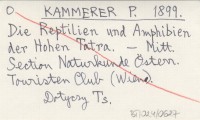 O KAMMERER P. 1899.
Die Reptilien und Amphibien
der Hohen Tatra. — Mitt.
Section Naturkunde Östern.
Touristen Club (Wien)
Dotyczy Ts.